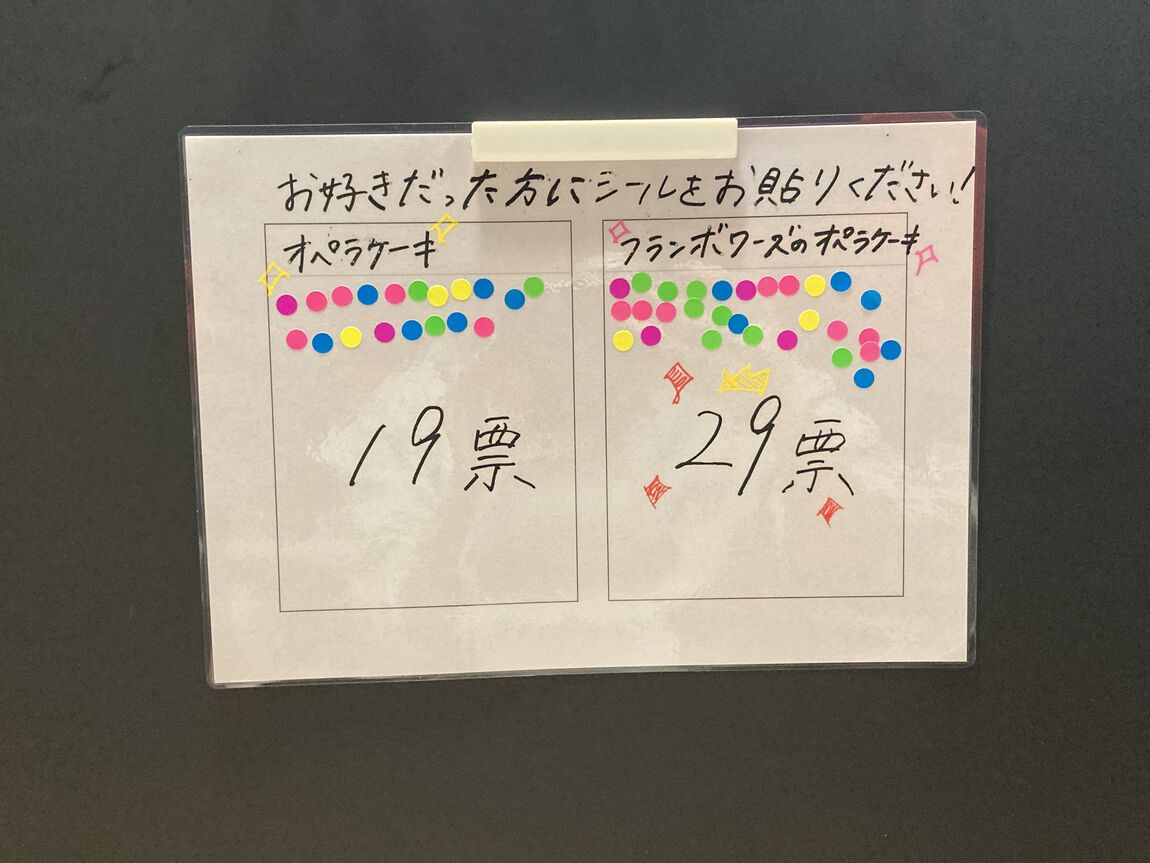 お好きだった方にシールをお貼りください!
オペラケーキ
フランボワーズのオペラケーキ
19票
29票